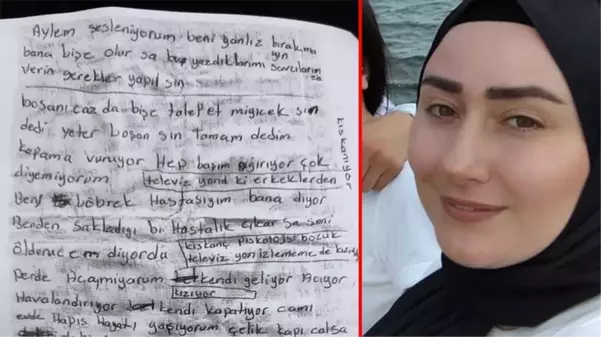 Aylem sesleniyorum beni yanlız bırakmayın
bana bişe olur sa bu yazdıklarımı savcıların
verin gerekler yapıl sın
boşanıcaz da bişe talep et miyicek sin
dedi yeter boşan sin tamam dedim
kapama vuruyor Hep başım ağırıyor çok
kıskanıyor
diyemiyorum televiz yond ki erkeklerden
Ben böbrek Hastasıyım bana diyor
Benden sakladığı bi Hastalık çıkar sa seni
öldürücem diyordu kıskanç piskolojisi bozuk
televiz yon izlememe de
Perde Açamıyorum kendi geliyor Açıyor
kızıyor
Havalandırıyor kendi kapatıyor camı
evde Hapis Hayatı yaşıyorum çelik kapı çalsa